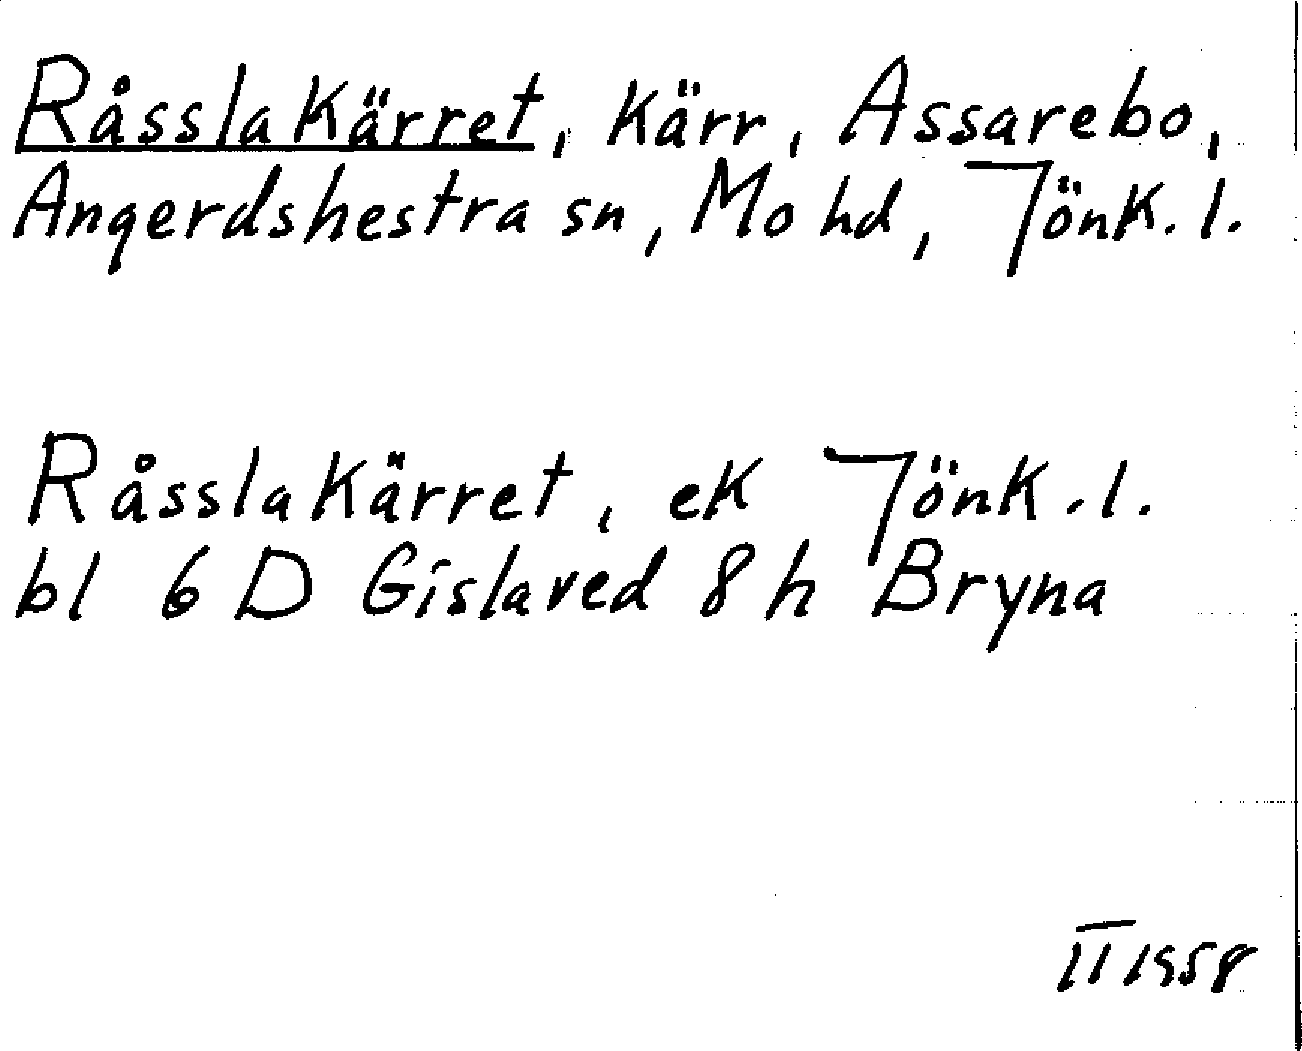 Råsslakärret, kärr, Assarebo,
Angerdshestra sn, Mo hd, Jönk. l.
Råsslakärret, ek Jönk. l.
bl 6 D Gislaved 8 h Bryna
II 1958